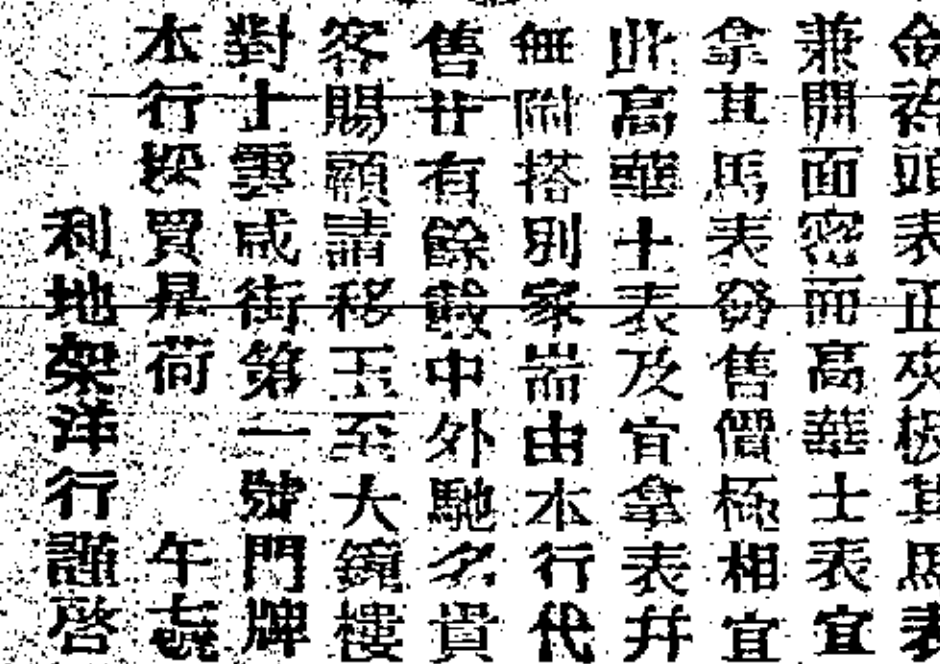 金裕頭表正夾板其馬表
兼開面密而高華士表宜
拿其馬表發售價極相宜
此高華士表及宜拿表并
無附搭別家耑由本行代
售廿有餘載中外馳名貴
客賜顧請移玉至大鏡樓
對上雲咸街第一號門牌
本行採買是荷 午七
利地架洋行謹啓